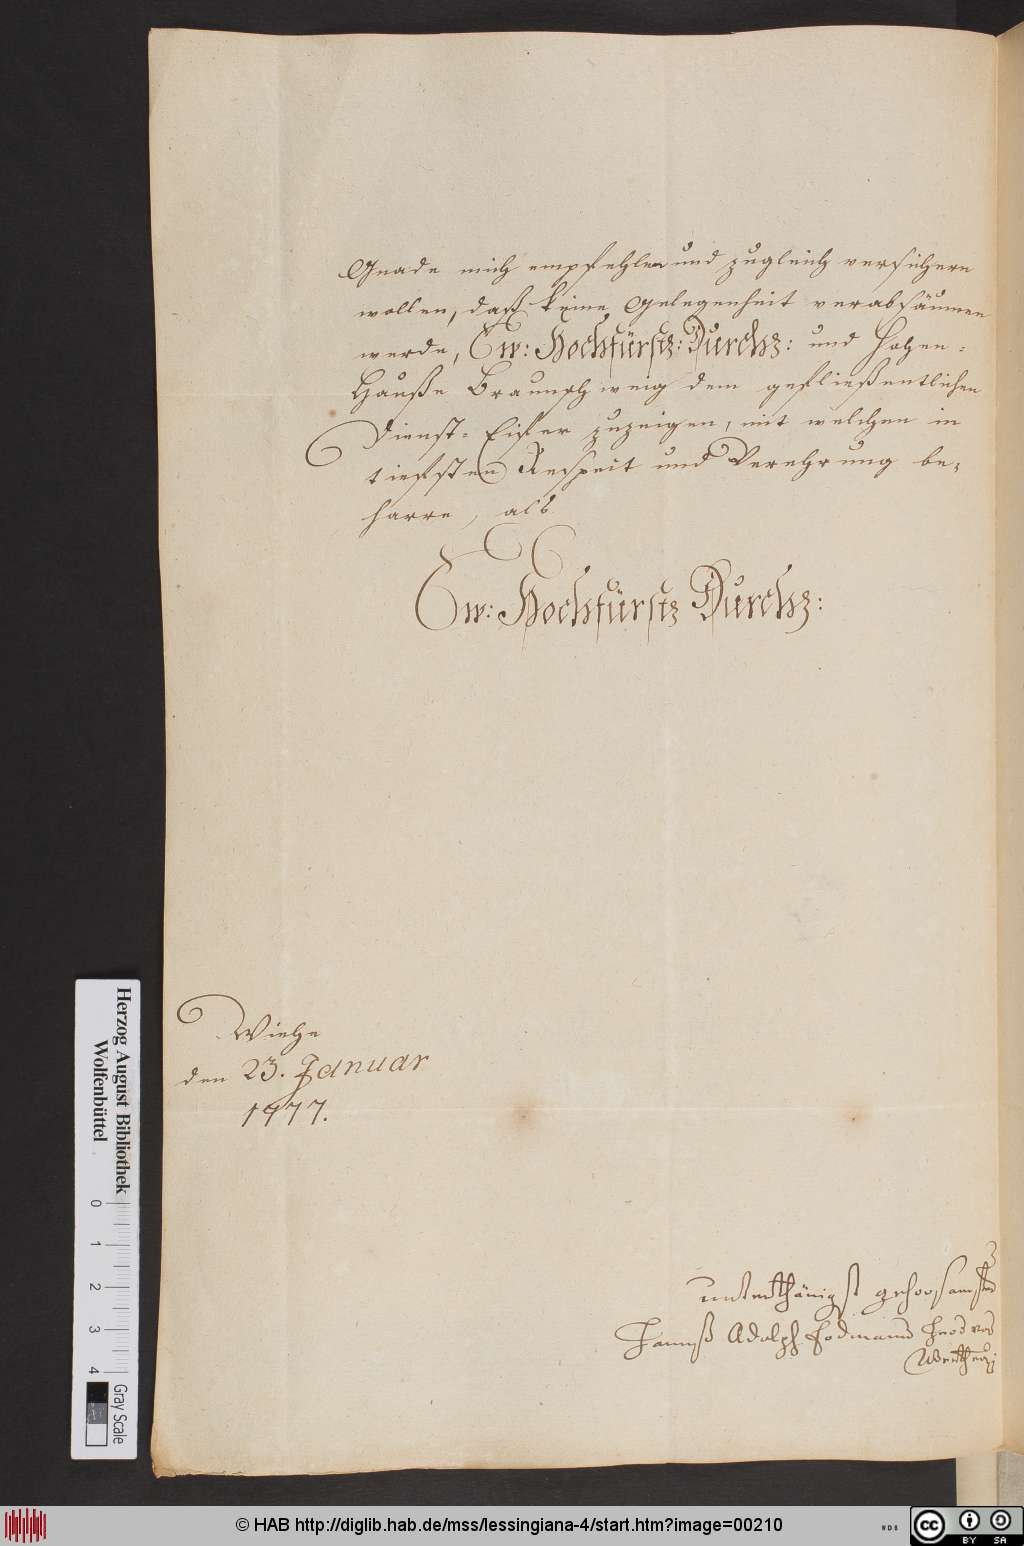 Gnade mich empfehlen und zugleich versichern
wollen, daß keine Gelegenheit verabsäumen
werde, Ew: Hochfürstl: Durchl: und Hohen-
Hauße Braunschweig dem gefließentlichen
Dienst-Eifer zuzeigen, mit welchen in
tiefsten Respect und Verehrung be-
harre, als
Ew: Hochfürstl Durchl:
Wiehe
den 23. Januar
1777.
unterthänigst gehorsamster
Hannß Adolph Erdmann von
Werthern
Herzog August Bibliothek
Wolfenbüttel
0 1 2 3 4
Gray Scale
© HAB http://diglib.hab.de/mss/lessingiana-4/start.htm?image=00210
WDB
cc BY SA